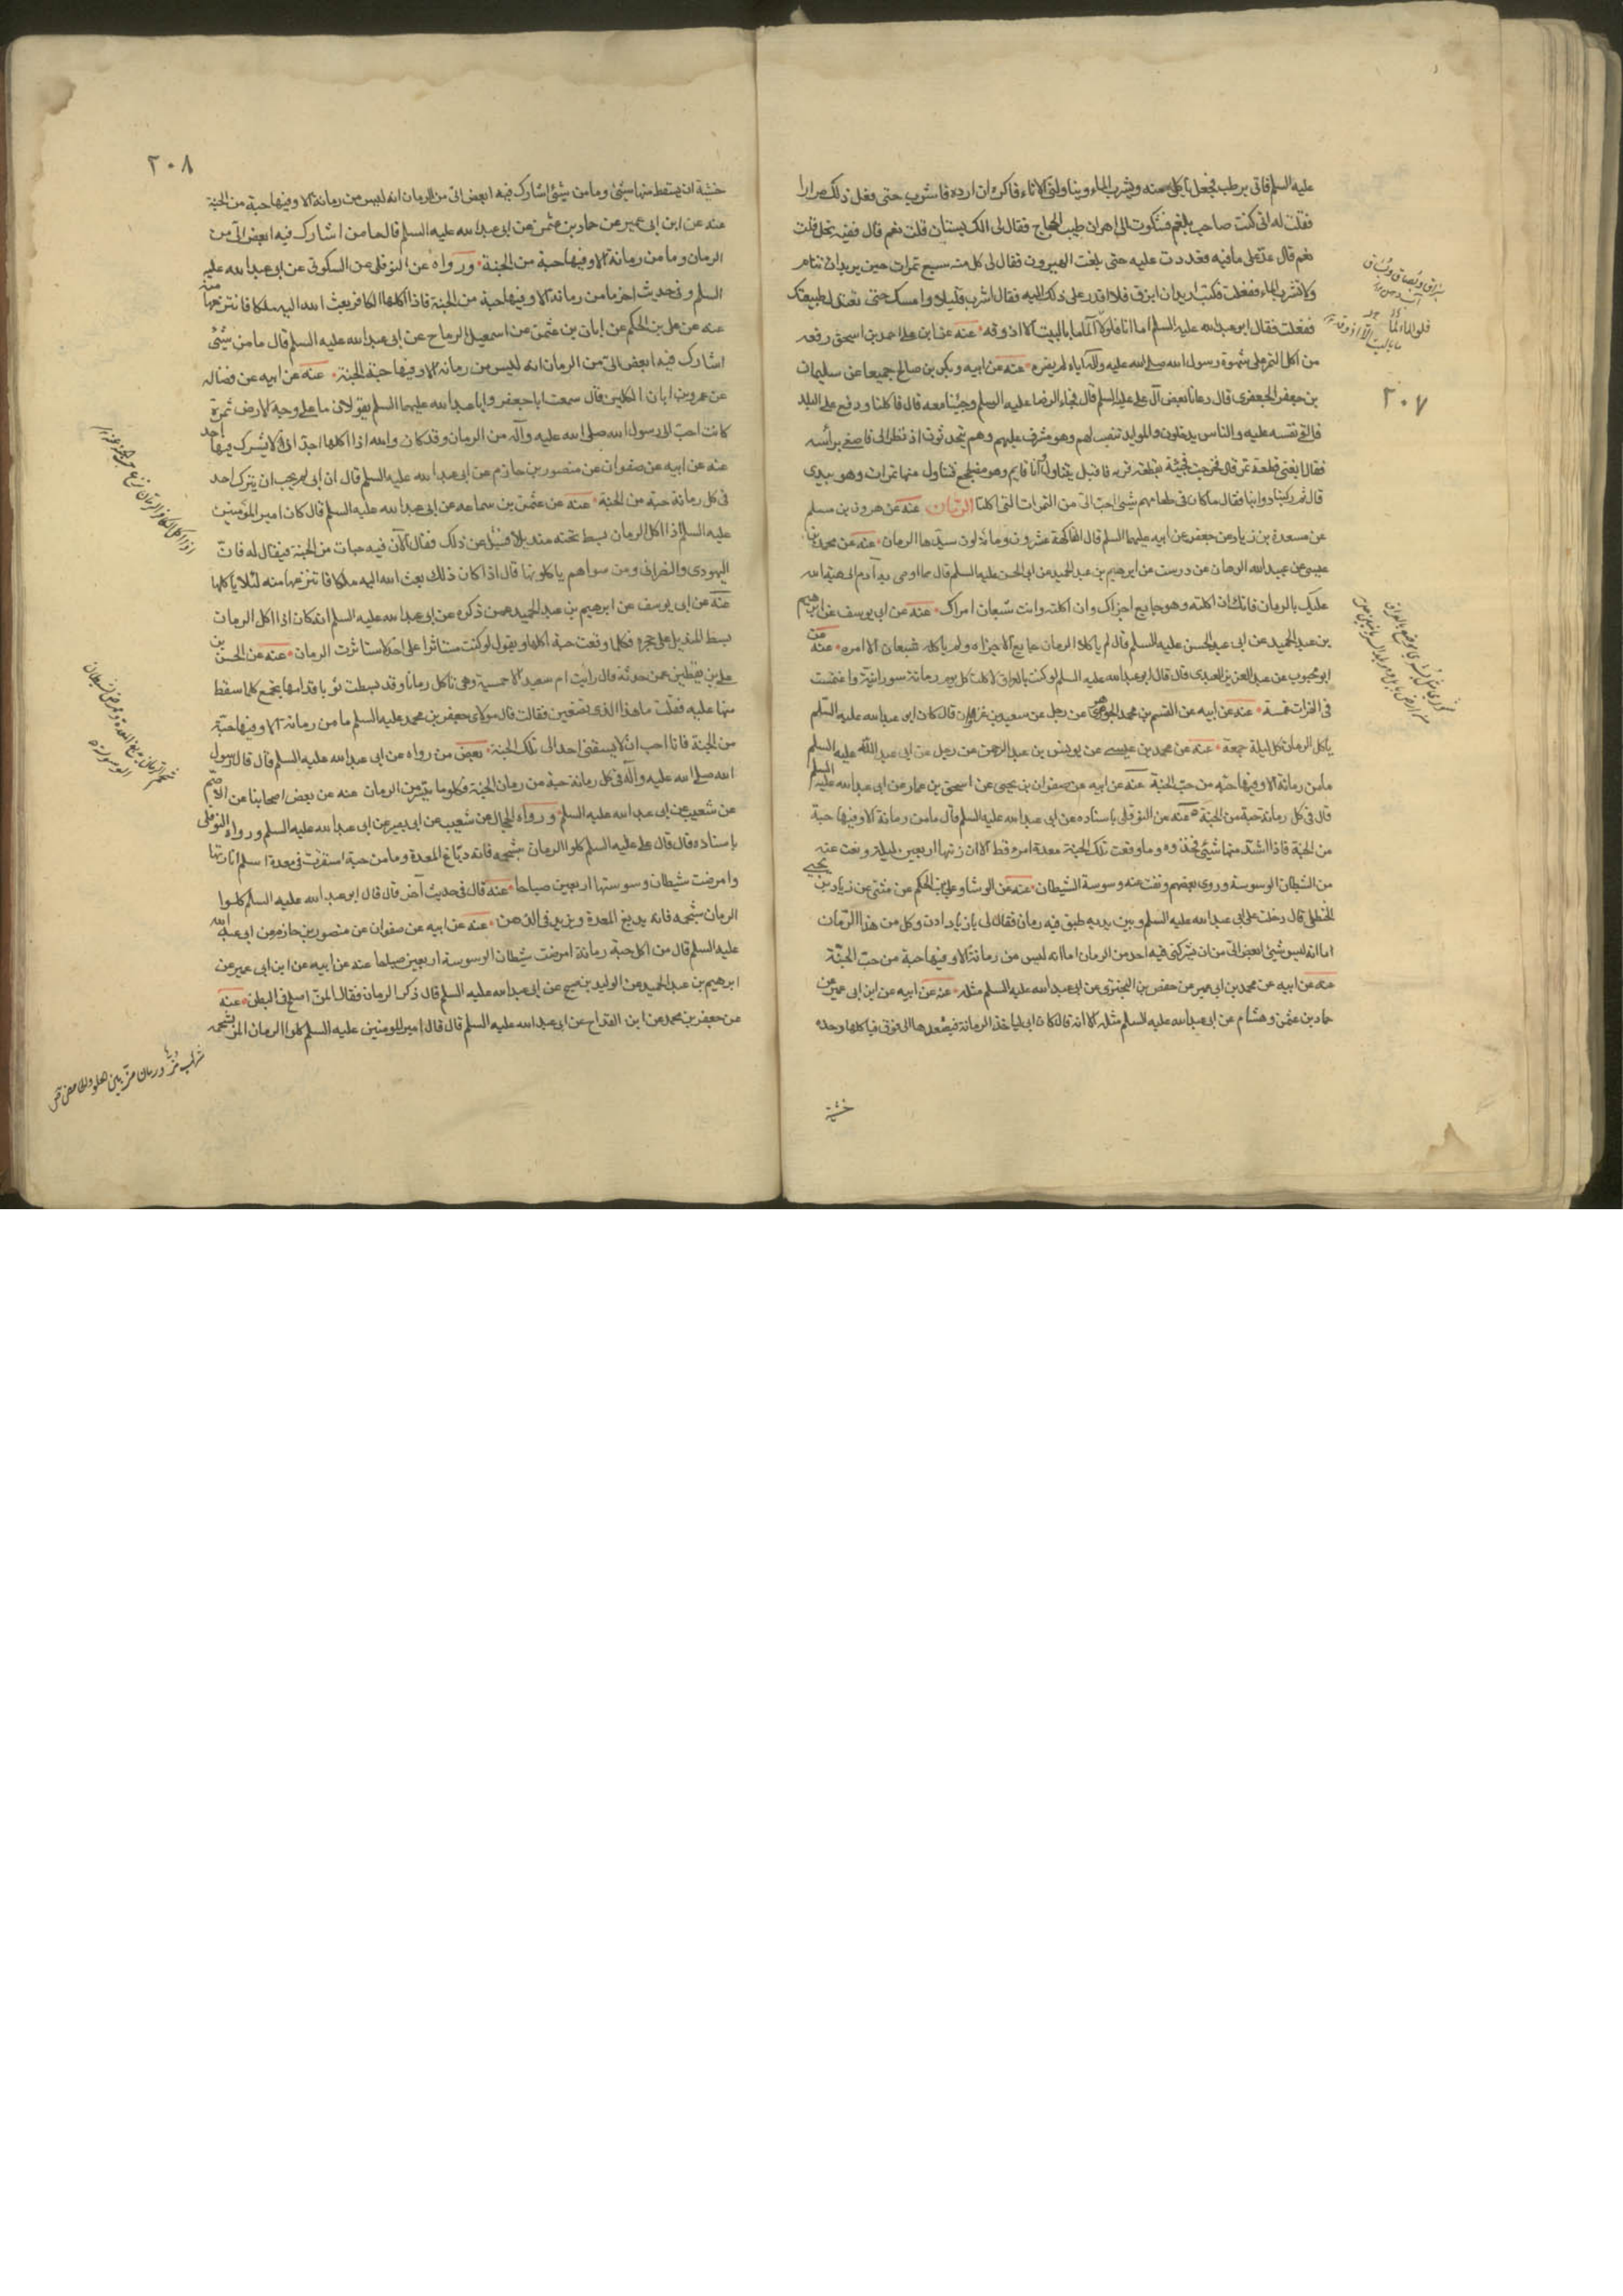 عليه السلم فاتى برطب فجعل يأكل منه ويشرب الماء ويناولنى الاناء فاكره ان ارده فاشرب حتى فعل ذلك مرارا
فقلت له انى كنت صاحب بلغم فشكوت الى اهرن طبيب الحجاج فقال لى الك بستان قلت نعم قال ففيه نخل قلت
نعم قال عدّ على مافيه فعددت عليه حتى بلغت الهيرون فقال لى كل منه سبع تمرات حين يريد ان تنام
ولا تشرب الماء ففعلت فكنت اريد ان ابزق فلا اقدر على ذلك فشكوت اليه فقال اشرب قليلا وامسك حتى تعتدل طبيعتك
ففعلت فقال ابو عبدالله عليه السلم اما انا فلولا الماء ما باليت الا اذوقه عنه عن ابن على احمد بن اسحق رفعه
من اكل التمر على شهوة رسول الله صلى الله عليه وآله اياه لم يضره عنه عن ابيه وبكر بن صالح جميعا عن سليمان
بن جعفر الجعفرى قال دعانا بعض آل على عليه السلم قال فجاء الرضا عليه السلم وجئنا معه قال فاكلنا ودفع على البلد
فالقى نفسه عليه والناس يدخلون والموايد تنصب لهم وهو مشرف عليهم وهم يتحدثون اذ نظر الى فاصغى برأسه
فقال ابغنى قطعة تمر قال فخرجت فجئته بقطعة فى قربة فاقبل يتناول وانا قايم وهو مضطجع فتناول منها تمرات وهو بيدى
قال ثم ركبنا دوابنا فقال ماكان فى طعامهم شيئ احب الى من التمرات التى اكلتها الرمان عنه عن هرون بن مسلم
عن مسعدة بن زياد عن جعفر عن ابيه عليهما السلم قال الفاكهة عشرون ومائة لون سيدها الرمان عنه عن محمد بن
عيسى عن عبيد الله الدهقان عن درست عن ابرهيم بن عبد الحميد عن ابى الحسن عليه السلم قال مما اوصى به آدم الى هبة الله
عليك بالرمان فانك ان اكلته وهو جايع اجزاك وان اكلته وانت شبعان امراك عنه عن ابى يوسف عن ابرهيم
بن عبد الحميد عن ابى الحسن عليه السلم قال لم ياكل الرمان جايع الا اجزاه ولم ياكله شبعان الا امره عنه عن
ابو محبوب عن عبد العزيز العبدى قال قال ابو عبد الله عليه السلم لو كنت بالعراق لاكلت كل يوم رمانة سورانية واغتمست
فى الفرات غمسة عنه عن ابيه عن القسم بن محمد الجوهرى عن رجل عن سعيد بن غزوان قال كان ابو عبد الله عليه السلم
ياكل الرمان كل ليلة جمعة عنه عن محمد بن عيسى عن يونس بن عبد الرحمن عن رجل عن ابى عبد الله عليه السلم
مامن رمانة الا وفيها حبة من حب الجنة عنه عن ابيه عن صفوان بن يحيى عن اسحق بن عمار عن ابى عبد الله عليه السلم
قال فى كل رمانة حبة من الجنة عنه عن النوفلى باسناده عن ابى عبد الله عليه السلم قال مامن رمانة الا وفيها حبة
من الجنة فاذا اشتد منها شيئ فخذوه وما وقعت تلك الحبة معدة امرء قط الا انارتها اربعين ليلة ونفت عنه
من الشيطان الوسوسة وروى بعضهم ونفت عنه وسوسة الشيطان عنه عن الوشا وعلى بن الحكم عن مثنى عن زياد بن يحيى
الحنظلى قال دخلت على ابى عبد الله عليه السلم وبين يديه طبق فيه رمان فقال لى يا زياد ادن وكل من هذا الرمان
اما انه ليس شيئ ابغض الى من ان يشركنى فيه احد من الرمان اما انه ليس من رمانة الا وفيها حبة من حب الجنة
عنه عن ابيه عن محمد بن ابى عمير عن حفص بن البخترى عن ابى عبد الله عليه السلم مثله عنه عن ابيه عن ابن ابى عمير عن
حماد بن عثمن وهشام عن ابى عبد الله عليه السلم مثله الا انه قال كان ابى لياخذ الرمانة فيصعد بها الى فوق فيأكلها وحده
خشية
٢٠٧
٢٠٨
خشية ان يسقط منها شيئ وما من شيئ اشارك فيه ابغض الى من الرمان انه ليس من رمانة الا وفيها حبة من الجنة
عنه عن ابن ابى عمير عن حماد بن عثمن عن ابى عبد الله عليه السلم قال ما من اشارك فيه ابغض الى من
الرمان وما من رمانة الا وفيها حبة من الجنة ورواه عن النوفلى عن السكونى عن ابى عبد الله عليه
السلم وفى حديث اخر ما من رمانة الا وفيها حبة من الجنة فاذا اكلها الكافر بعث الله اليه ملكا فانتزعها منه
عنه عن على بن الحكم عن ابان بن عثمن عن اسمعيل الرماح عن ابى عبد الله عليه السلم قال ما من شيئ
اشارك فيه ابغض الى من الرمان انه ليس من رمانة الا وفيها حبة الجنة عنه عن ابيه عن فضالة
عن عمرو بن ابان الكلبى قال سمعت ابا جعفر وابا عبد الله عليهما السلم يقولان ما على وجه الارض ثمرة
كانت احب الى رسول الله صلى الله عليه وآله من الرمان وقد كان والله اذا اكلها احب ان لا يشركه فيها احد
عنه عن ابيه عن صفوان عن منصور بن حازم عن ابى عبد الله عليه السلم قال ان ابى لم يحب ان يشركه احد
فى كل رمانة حبة من الجنة عنه عن عثمن بن سماعه عن ابى عبد الله عليه السلم قال كان امير المؤمنين
عليه السلم اذا اكل الرمان بسط تحته منديلا فسئل عن ذلك فقال لان فيه حبات من الجنة فيقال له فان
اليهودى والنصرانى ومن سواهم ياكلونها قال اذا كان ذلك بعث الله اليه ملكا فانتزعها منه لئلا يأكلها
عنه عن ابى يوسف عن ابرهيم بن عبد الحميد عمن ذكره عن ابى عبد الله عليه السلم انه كان اذا اكل الرمان
بسط المنديل على حجره فكلما وقعت حبة اكلها ويقول لو كنت مستاثرا على احد لاستاثرت الرمان عنه عن الحسن بن
على بن يقطين عمن حدثه قال رايت ام سعيد الاحمسية وهى تاكل رمانا وقد بسطت ثوبا قدامها يجمع كلما سقط
منها عليه فقلت ما هذا الذى تصنعين فقالت قال مولاى جعفر بن محمد عليه السلم ما من رمانة الا وفيها حبة
من الجنة فانا احب ان لا يسبقنى احد الى تلك الحبة بعض من رواه عن ابى عبد الله عليه السلم قال قال رسول
الله صلى الله عليه وآله فى كل رمانة حبة من رمان الجنة فكلوا ما ينتثر من الرمان عنه عن بعض اصحابنا عن الاصم
عن شعيب عن ابى عبد الله عليه السلم ورواه الحجال عن شعيب عن ابى بصير عن ابى عبد الله عليه السلم ورواه النوفلى
باسناده قال قال على عليه السلم كلوا الرمان بشحمه فانه دباغ المعدة وما من حبة استقرت فى معدة مسلم انارتها
وامرضت شيطان وسوستها اربعين صباحا عنه قال فى حديث آخر قال قال ابو عبد الله عليه السلم كلوا
الرمان بشحمه فانه يدبغ المعدة ويزيد فى الذهن عنه عن ابيه عن صفوان عن منصور بن حازم عن ابى عبد الله
عليه السلم قال من اكل حبة رمانة امرضت شيطان الوسوسة اربعين صباحا عنه عن ابيه عن ابن ابى عمير عن
ابرهيم بن عبد الحميد عن الوليد بن صبيح عن ابى عبد الله عليه السلم قال ذكر الرمان فقال المز اصلح فى البطن عنه
عن جعفر بن محمد عن ابن القداح عن ابى عبد الله عليه السلم قال قال امير المومنين عليه السلم كلوا الرمان المز بشحمه